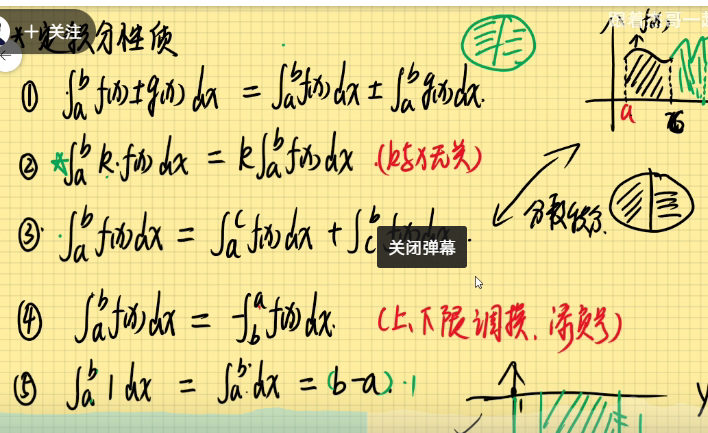 + 关注
*定积分性质
① ∫ₐᵇ f(x)±g(x) dx = ∫ₐᵇ f(x)dx ± ∫ₐᵇ g(x)dx.
② *∫ₐᵇ k·f(x)dx = k∫ₐᵇ f(x)dx (k与x无关)
③ ∫ₐᵇ f(x)dx = ∫ₐᶜ f(x)dx + ∫꜀ᵇ f(x)dx.
分段积分.
关闭弹幕
④ ∫ₐᵇ f(x)dx = -∫ᵇₐ f(x)dx. (上、下限调换、添负号)
⑤ ∫ₐᵇ 1 dx = ∫ₐᵇ dx = (b-a)·1
f(x)
a
1
y